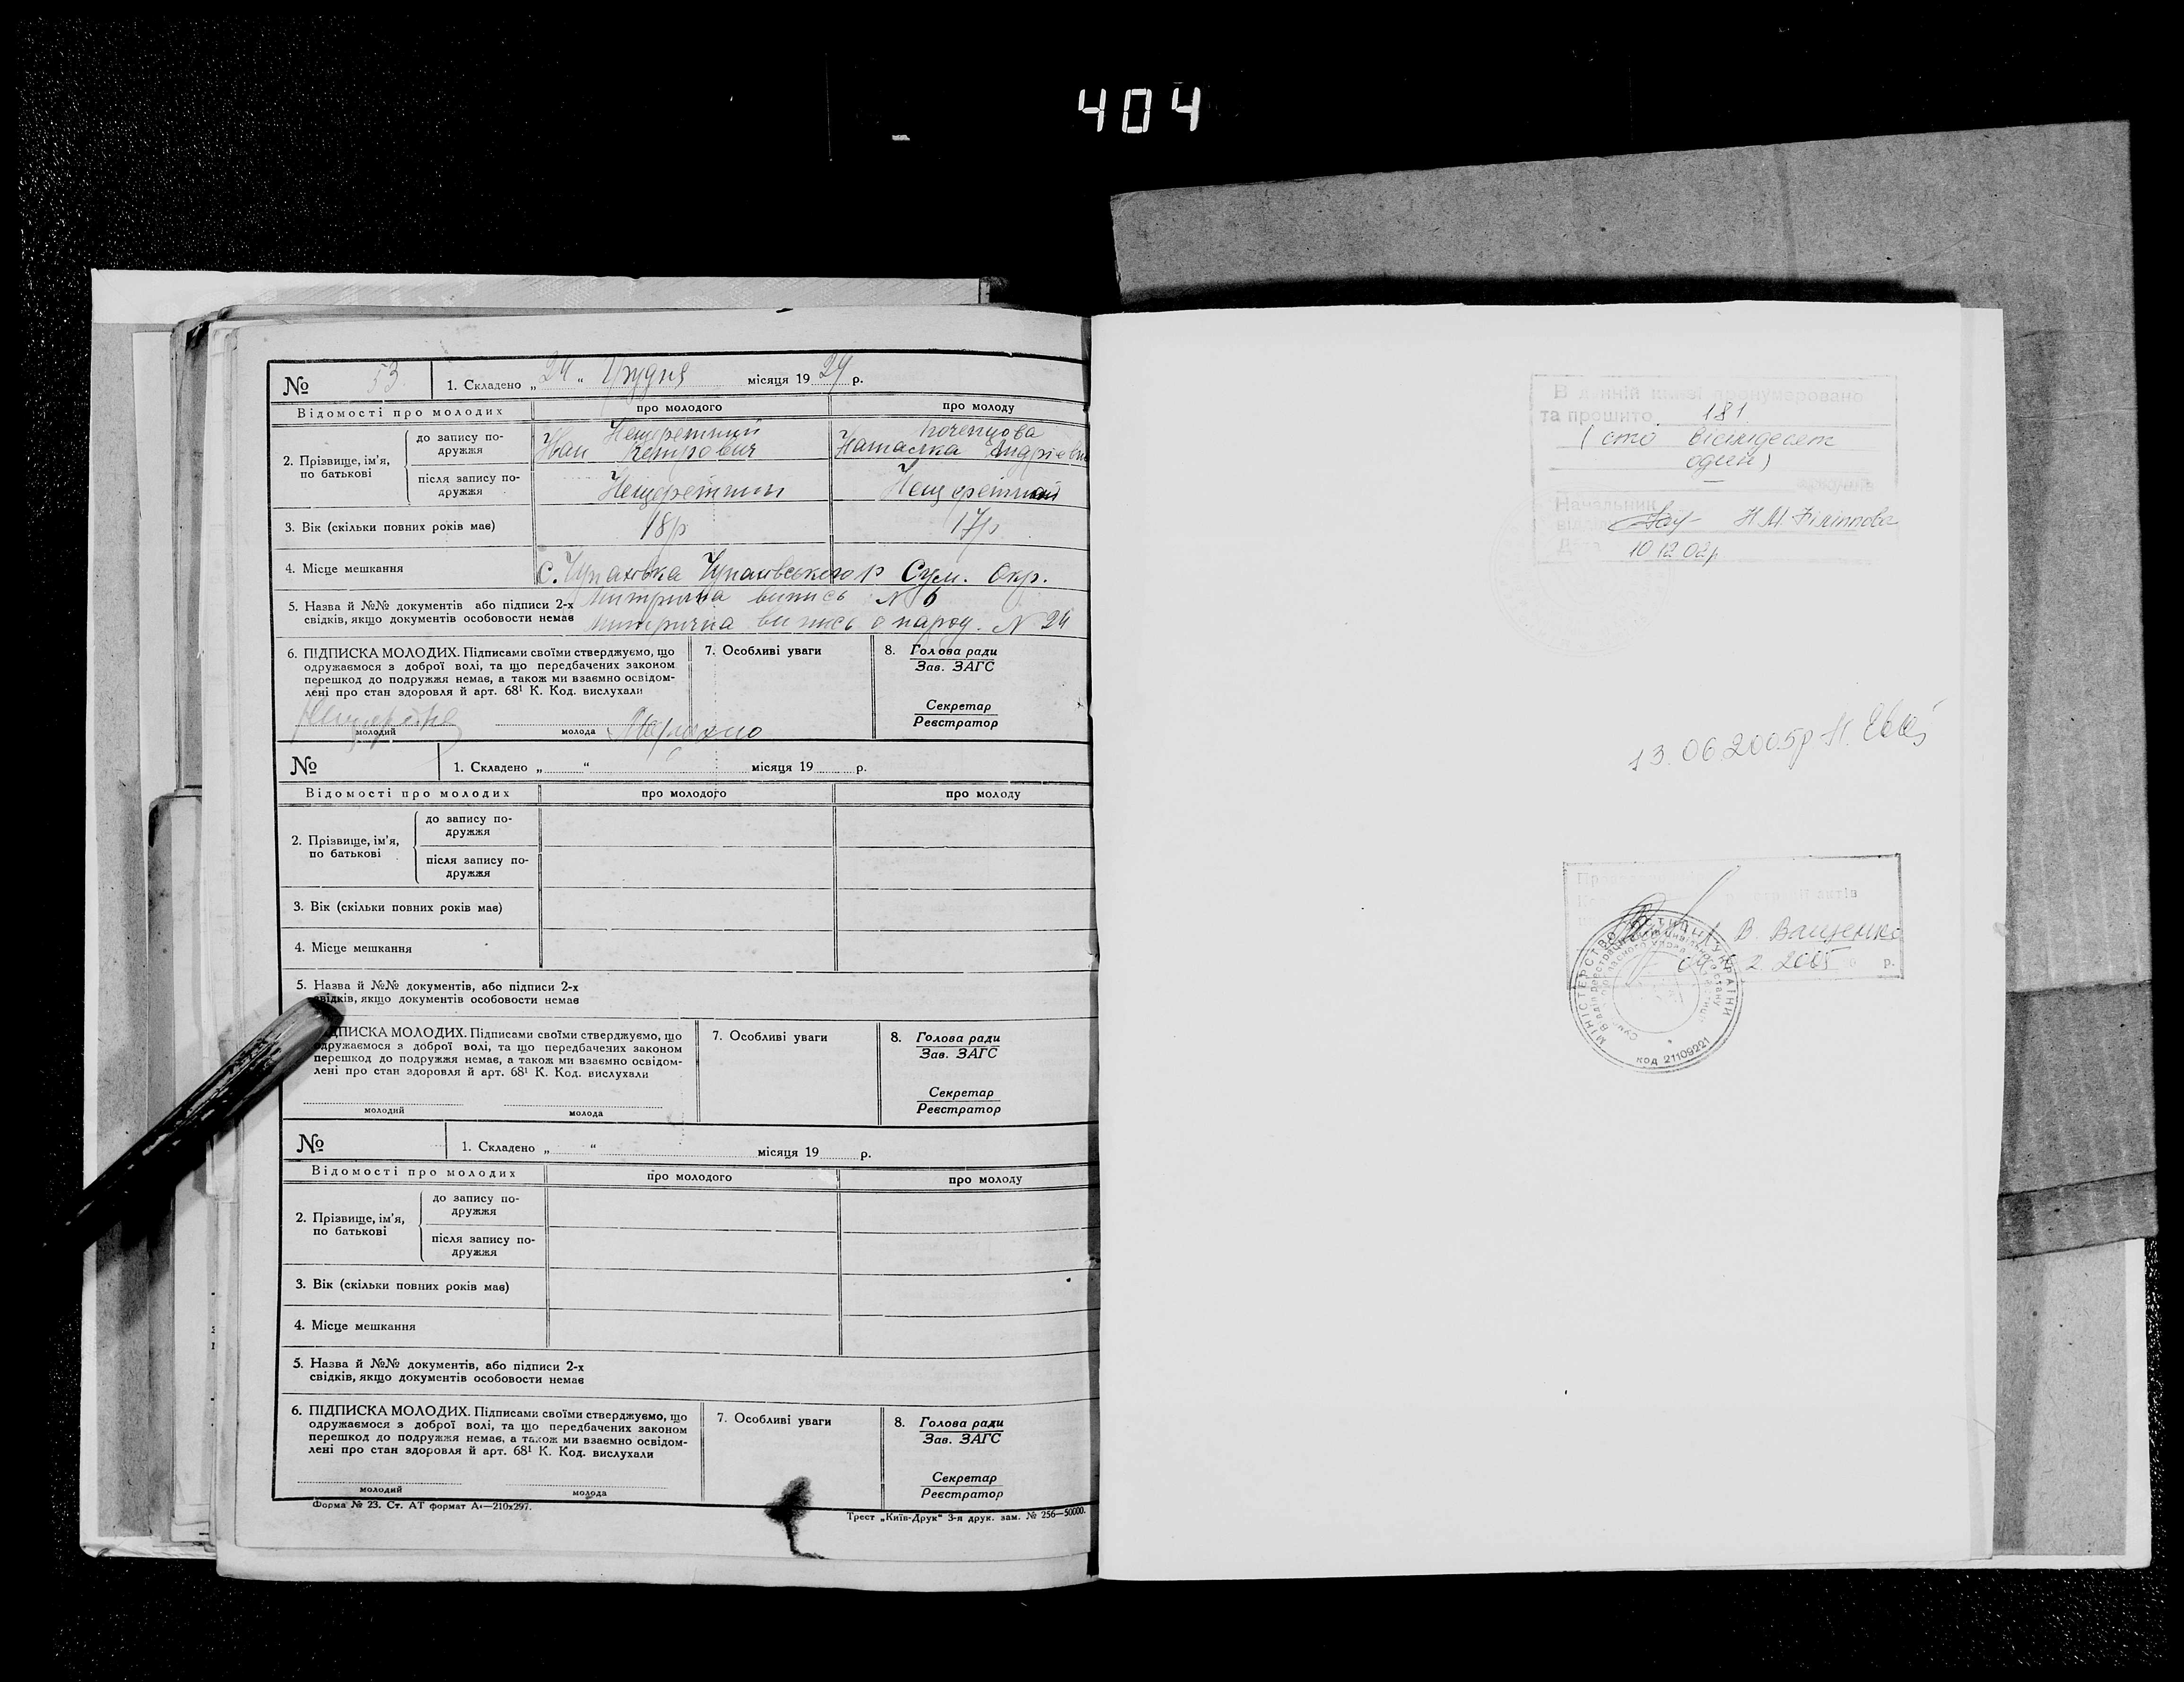 404
№ 53 1. Складено „24“ Грудня місяця 1929 р.
Відомості про молодих про молодого про молоду
2. Прізвище, ім’я, по батькові
до запису подружжя
Нещеретний
Іван Петрович
Коченцова
Наталка Андріевна
після запису подружжя
Нещеретний Нещеретний
3. Вік (скільки повних років має) 18р 17р
4. Місце мешкання с. Чупахівка Чупахівського р Сум. Окр.
5. Назва й №№ документів або підписи 2-х Митрична випись № 6
свідків, якщо документів особовости немає Митрична випись о народ. № 24
6. ПІДПИСКА МОЛОДИХ. Підписами своїми стверджуємо, що
одружаємося з доброї волі, та що передбачених законом
перешкод до подружжя немає, а також ми взаємно освідом-
лені про стан здоровля й арт. 68¹ К. Код. вислухали
молодий молода
7. Особливі уваги
8. Голова ради
Зав. ЗАГС
Секретар
Реєстратор
№ 1. Складено „ “ місяця 19 р.
Відомості про молодих про молодого про молоду
2. Прізвище, ім’я,
по батькові
до запису по-
дружжя
після запису по-
дружжя
3. Вік (скільки повних років має)
4. Місце мешкання
5. Назва й №№ документів, або підписи 2-х
свідків, якщо документів особовости немає
ПИСКА МОЛОДИХ. Підписами своїми стверджуємо, що
одружаємося з доброї волі, та що передбачених законом
перешкод до подружжя немає, а також ми взаємно освідом-
лені про стан здоровля й арт. 68¹ К. Код. вислухали
молодий молода
7. Особливі уваги
8. Голова ради
Зав. ЗАГС
Секретар
Реєстратор
№ 1. Складено „ “ місяця 19 р.
Відомості про молодих про молодого про молоду
2. Прізвище, ім’я,
по батькові
до запису по-
дружжя
після запису по-
дружжя
3. Вік (скільки повних років має)
4. Місце мешкання
5. Назва й №№ документів, або підписи 2-х
свідків, якщо документів особовости немає
6. ПІДПИСКА МОЛОДИХ. Підписами своїми стверджуємо, що
одружаємося з доброї волі, та що передбачених законом
перешкод до подружжя немає, а також ми взаємно освідом-
лені про стан здоровля й арт. 68¹ К. Код. вислухали
молодий молода
7. Особливі уваги
8. Голова ради
Зав. ЗАГС
Секретар
Реєстратор
Форма № 23. Ст. АТ формат А4—210x297.
Трест „Київ-Друк“ 3-я друк. зам. № 256—50000.
В данній книзі пронумеровано
та прошито 181
(сто вісімдесят
один)
Начальник
Н.М. Філіппова
Дата 10 12 02р
13.06.2005р Н.
актів
В. Ващенко
2005 р.
МІНІСТЕРСТВО ЮСТИЦІЇ УКРАЇНИ
код 21109221